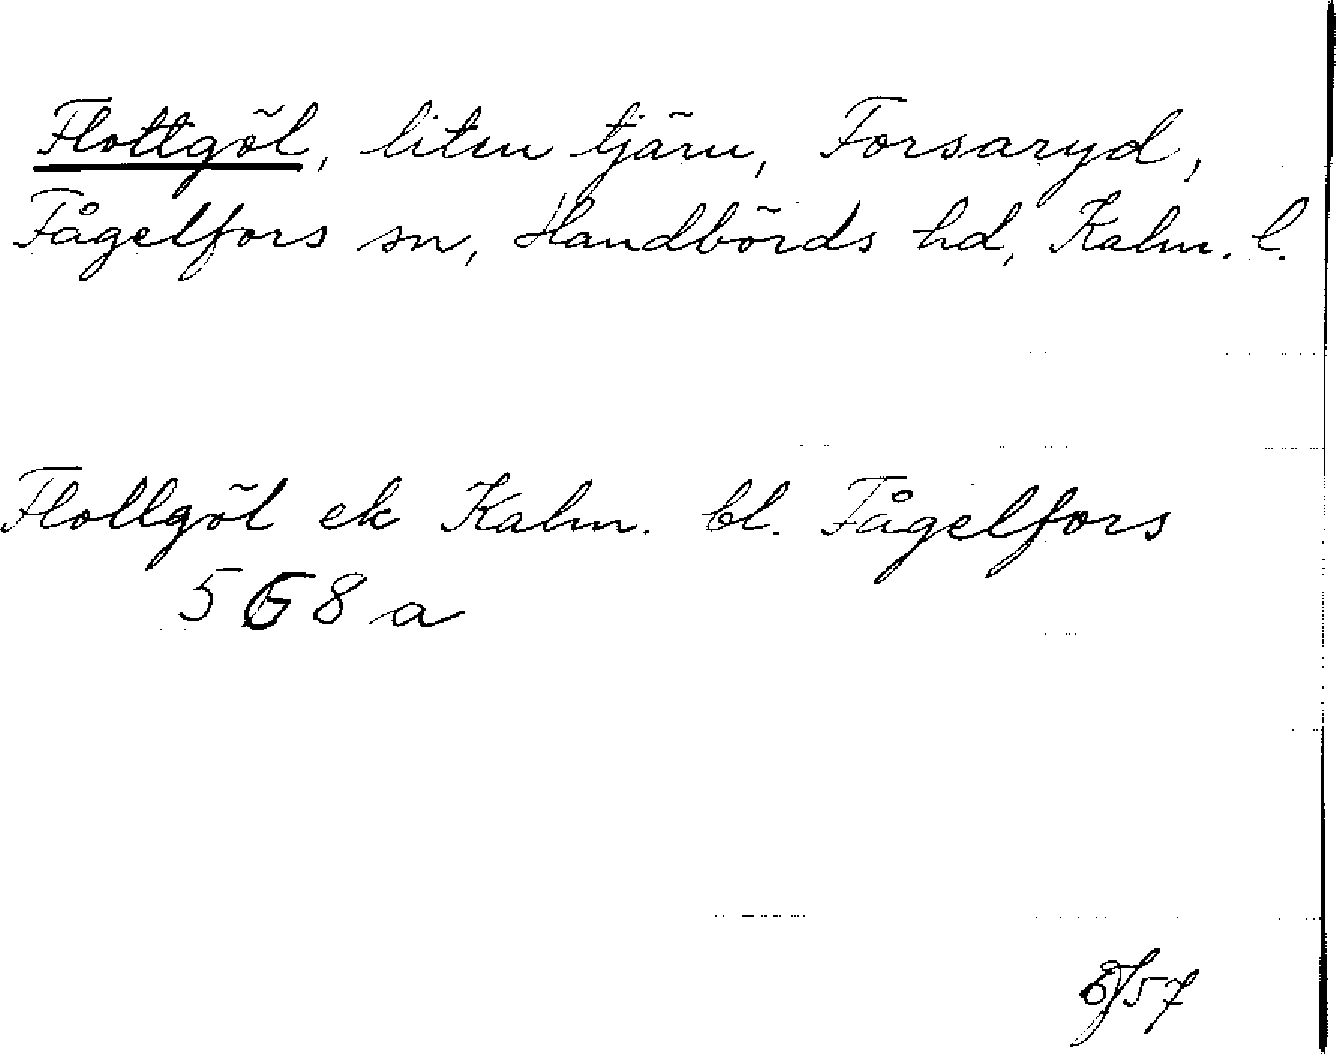 Flottgöl, liten tjärn, Forsaryd,
Fågelfors sn, Handbörds hd, Kalm. l.
Flollgöl ek Kalm. bl. Fågelfors
5 G 8 a